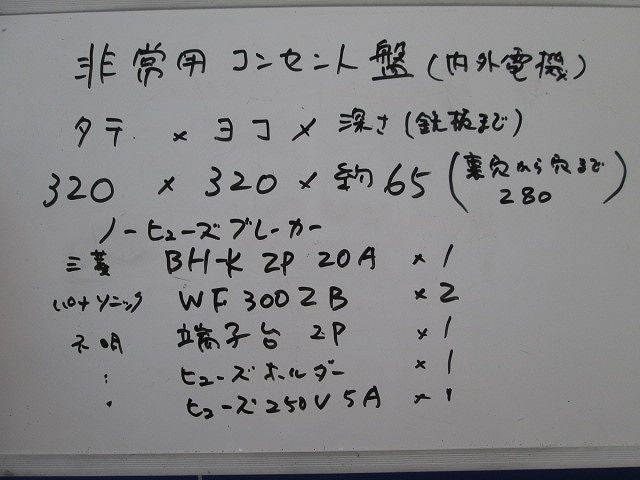 非常用コンセント盤(内外電機)
タテ × ヨコ × 深さ(鉄板まで)
320 × 320 × 約65(裏穴から穴まで280)
ノーヒューズブレーカー
三菱 BH-K 2P 20A ×1
パナソニック WF3002B ×2
不明 端子台 2P ×1
〃 ヒューズホルダー ×1
〃 ヒューズ250V 5A ×1